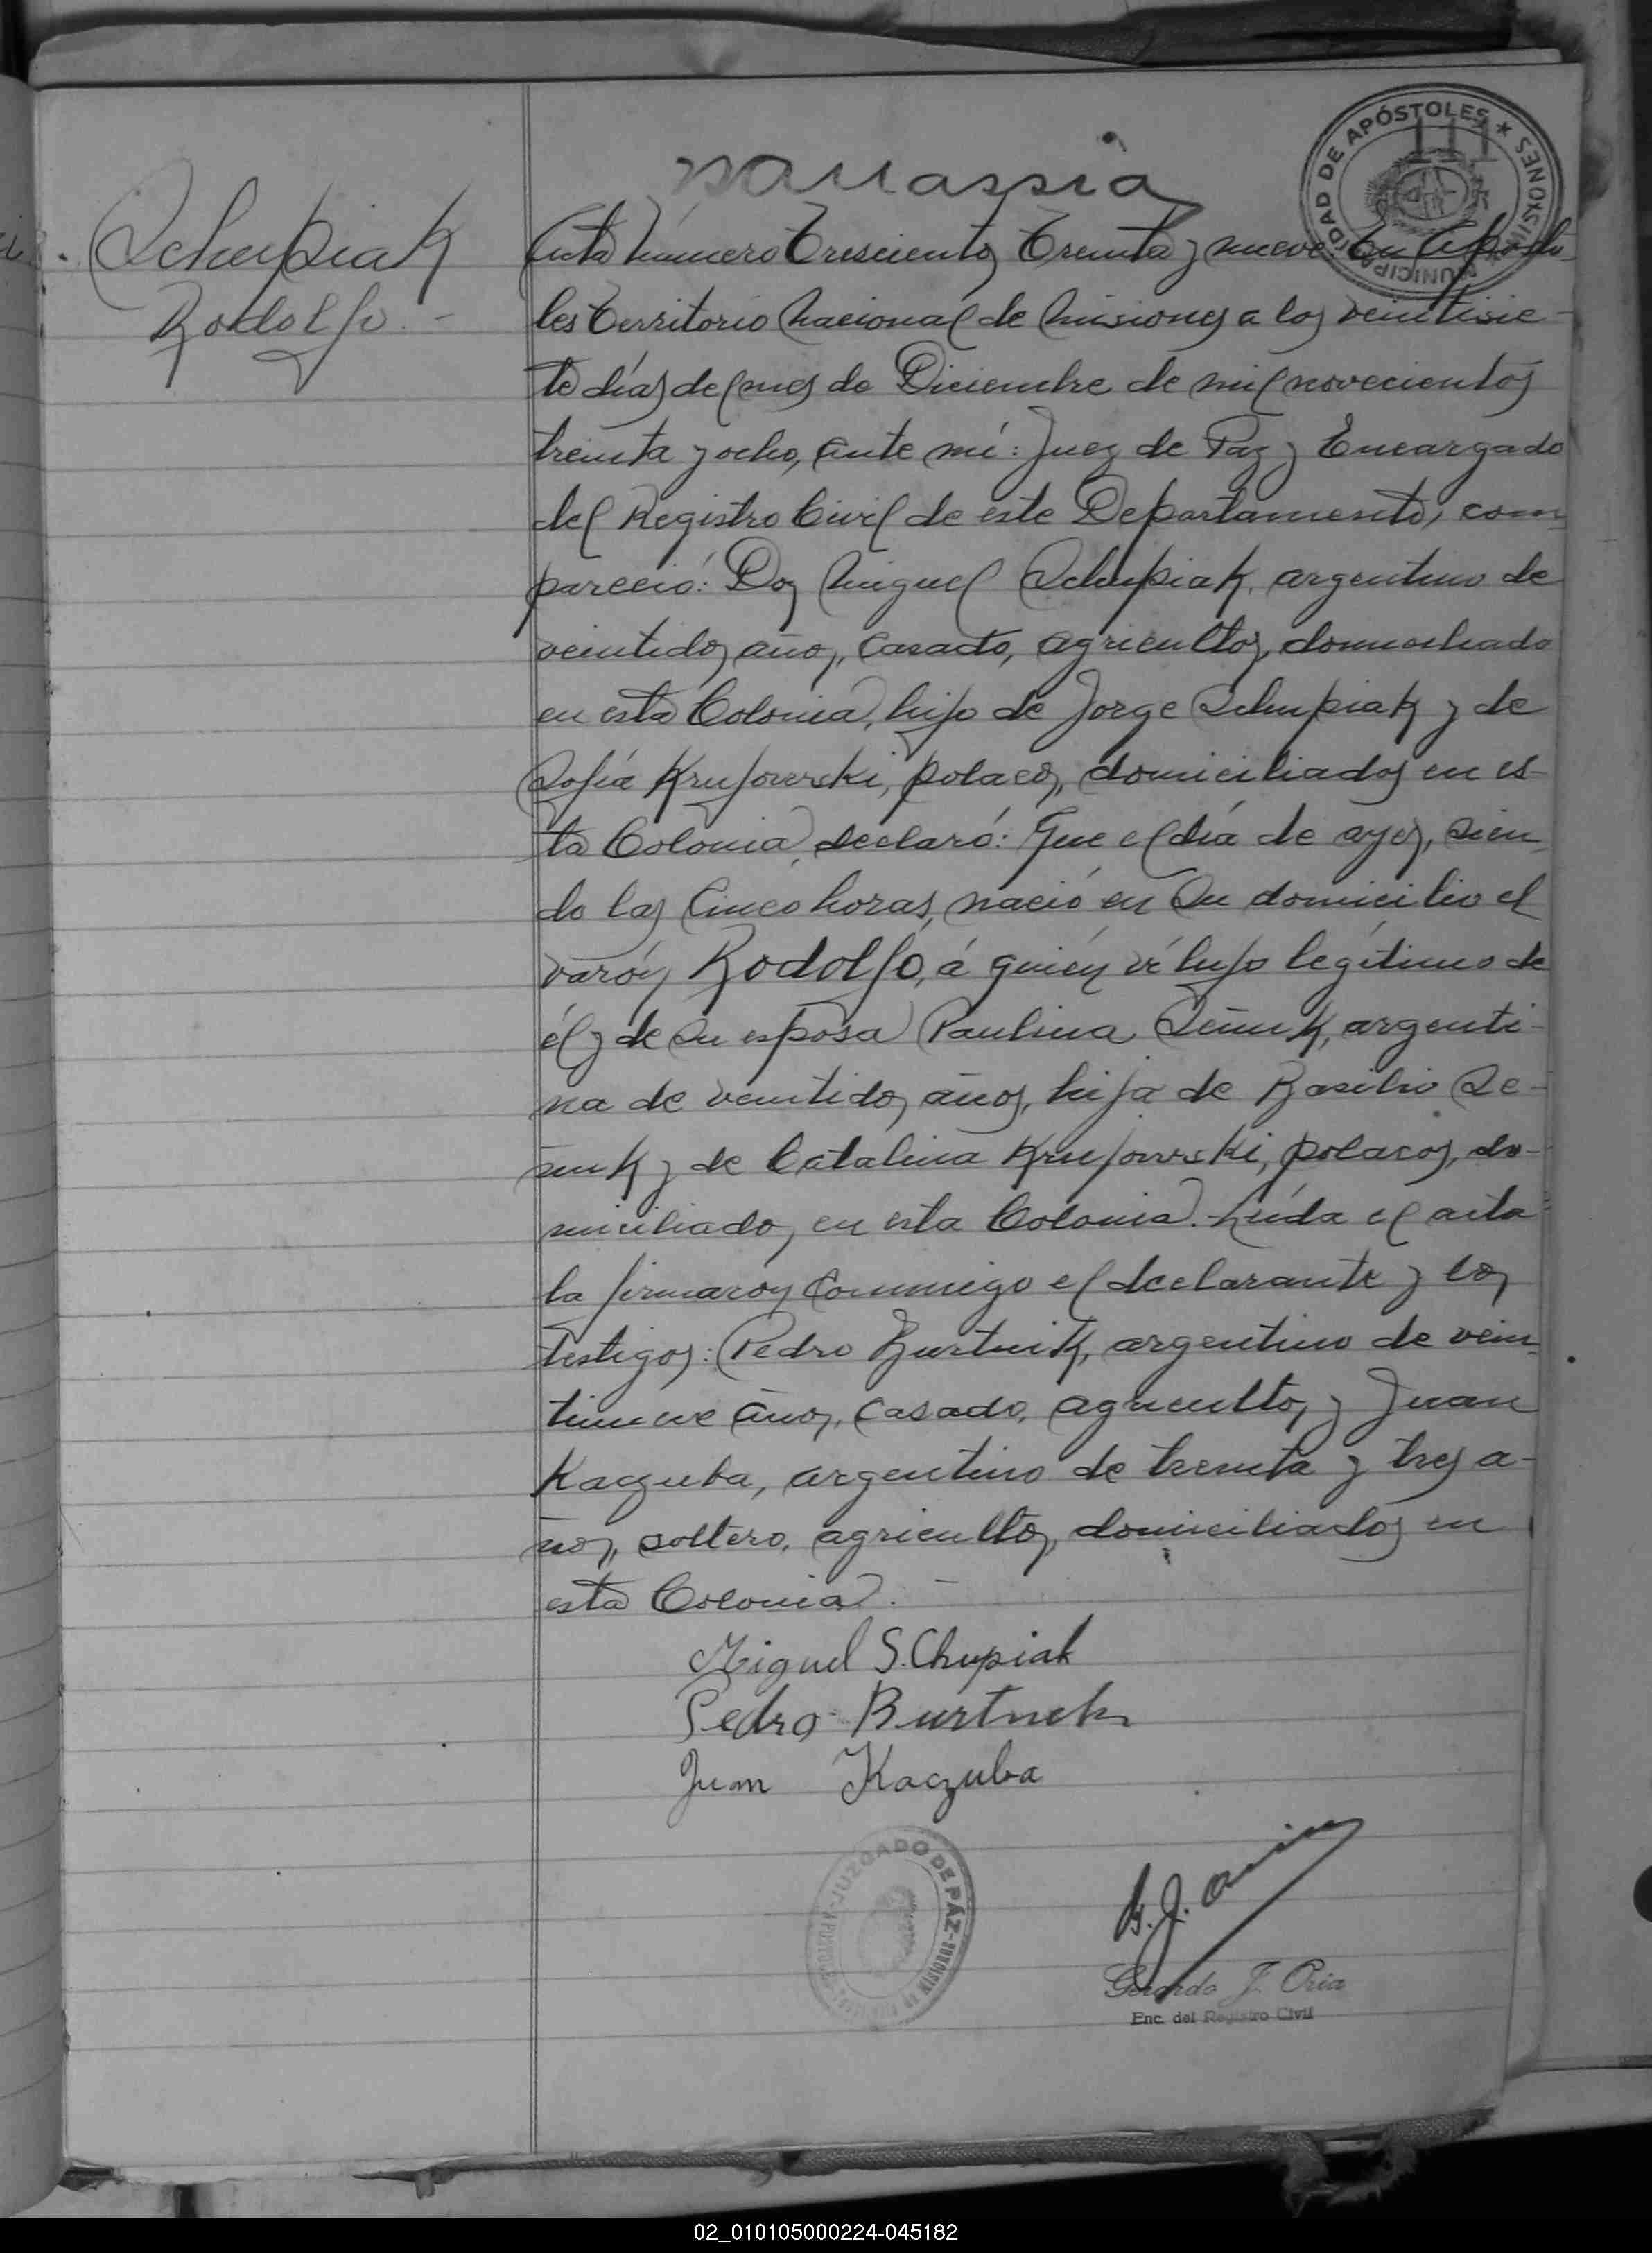 MUNICIPALIDAD DE APÓSTOLES ★ MISIONES
111
Schupiak
Rodolfo.-
Acta número Trescientos Treinta y nueve: En Aposto-
les Territorio Nacional de Misiones a los veintisie-
te días del mes de Diciembre de mil novecientos
treinta y ocho, ante mí: Juez de Paz y Encargado
del Registro Civil de este Departamento, com-
pareció: Don Miguel Schupiak, argentino de
veintidos años, casado, agricultor, domiciliado
en esta Colonia, hijo de Jorge Schupiak y de
Sofía Krujowski, polacos, domiciliados en es-
ta Colonia, declaró: Que el día de ayer, sien-
do las cinco horas, nació en su domicilio el
varón Rodolfo, á quién ví hijo legítimo de
él y de su esposa Paulina Señuk, argenti-
na de veintidos años, hija de Basilio Se-
ñuk y de Catalina Krujowski, polacos, do-
miciliados en esta Colonia.- Leída el acta
la firmaron conmigo el declarante y los
testigos: Pedro Burtnik, argentino de vein-
tinueve años, casado, agricultor, y Juan
Kaczuba, argentino de treinta y tres a-
ños, soltero, agricultor, domiciliados en
esta Colonia.-
Miguel S.Chupiak
Pedro Burtnek
Juan Kaczuba
JUZGADO DE PAZ - MISIONES
G. J. Oria
Gerardo J. Oria
Enc. del Registro Civil
02_010105000224-045182